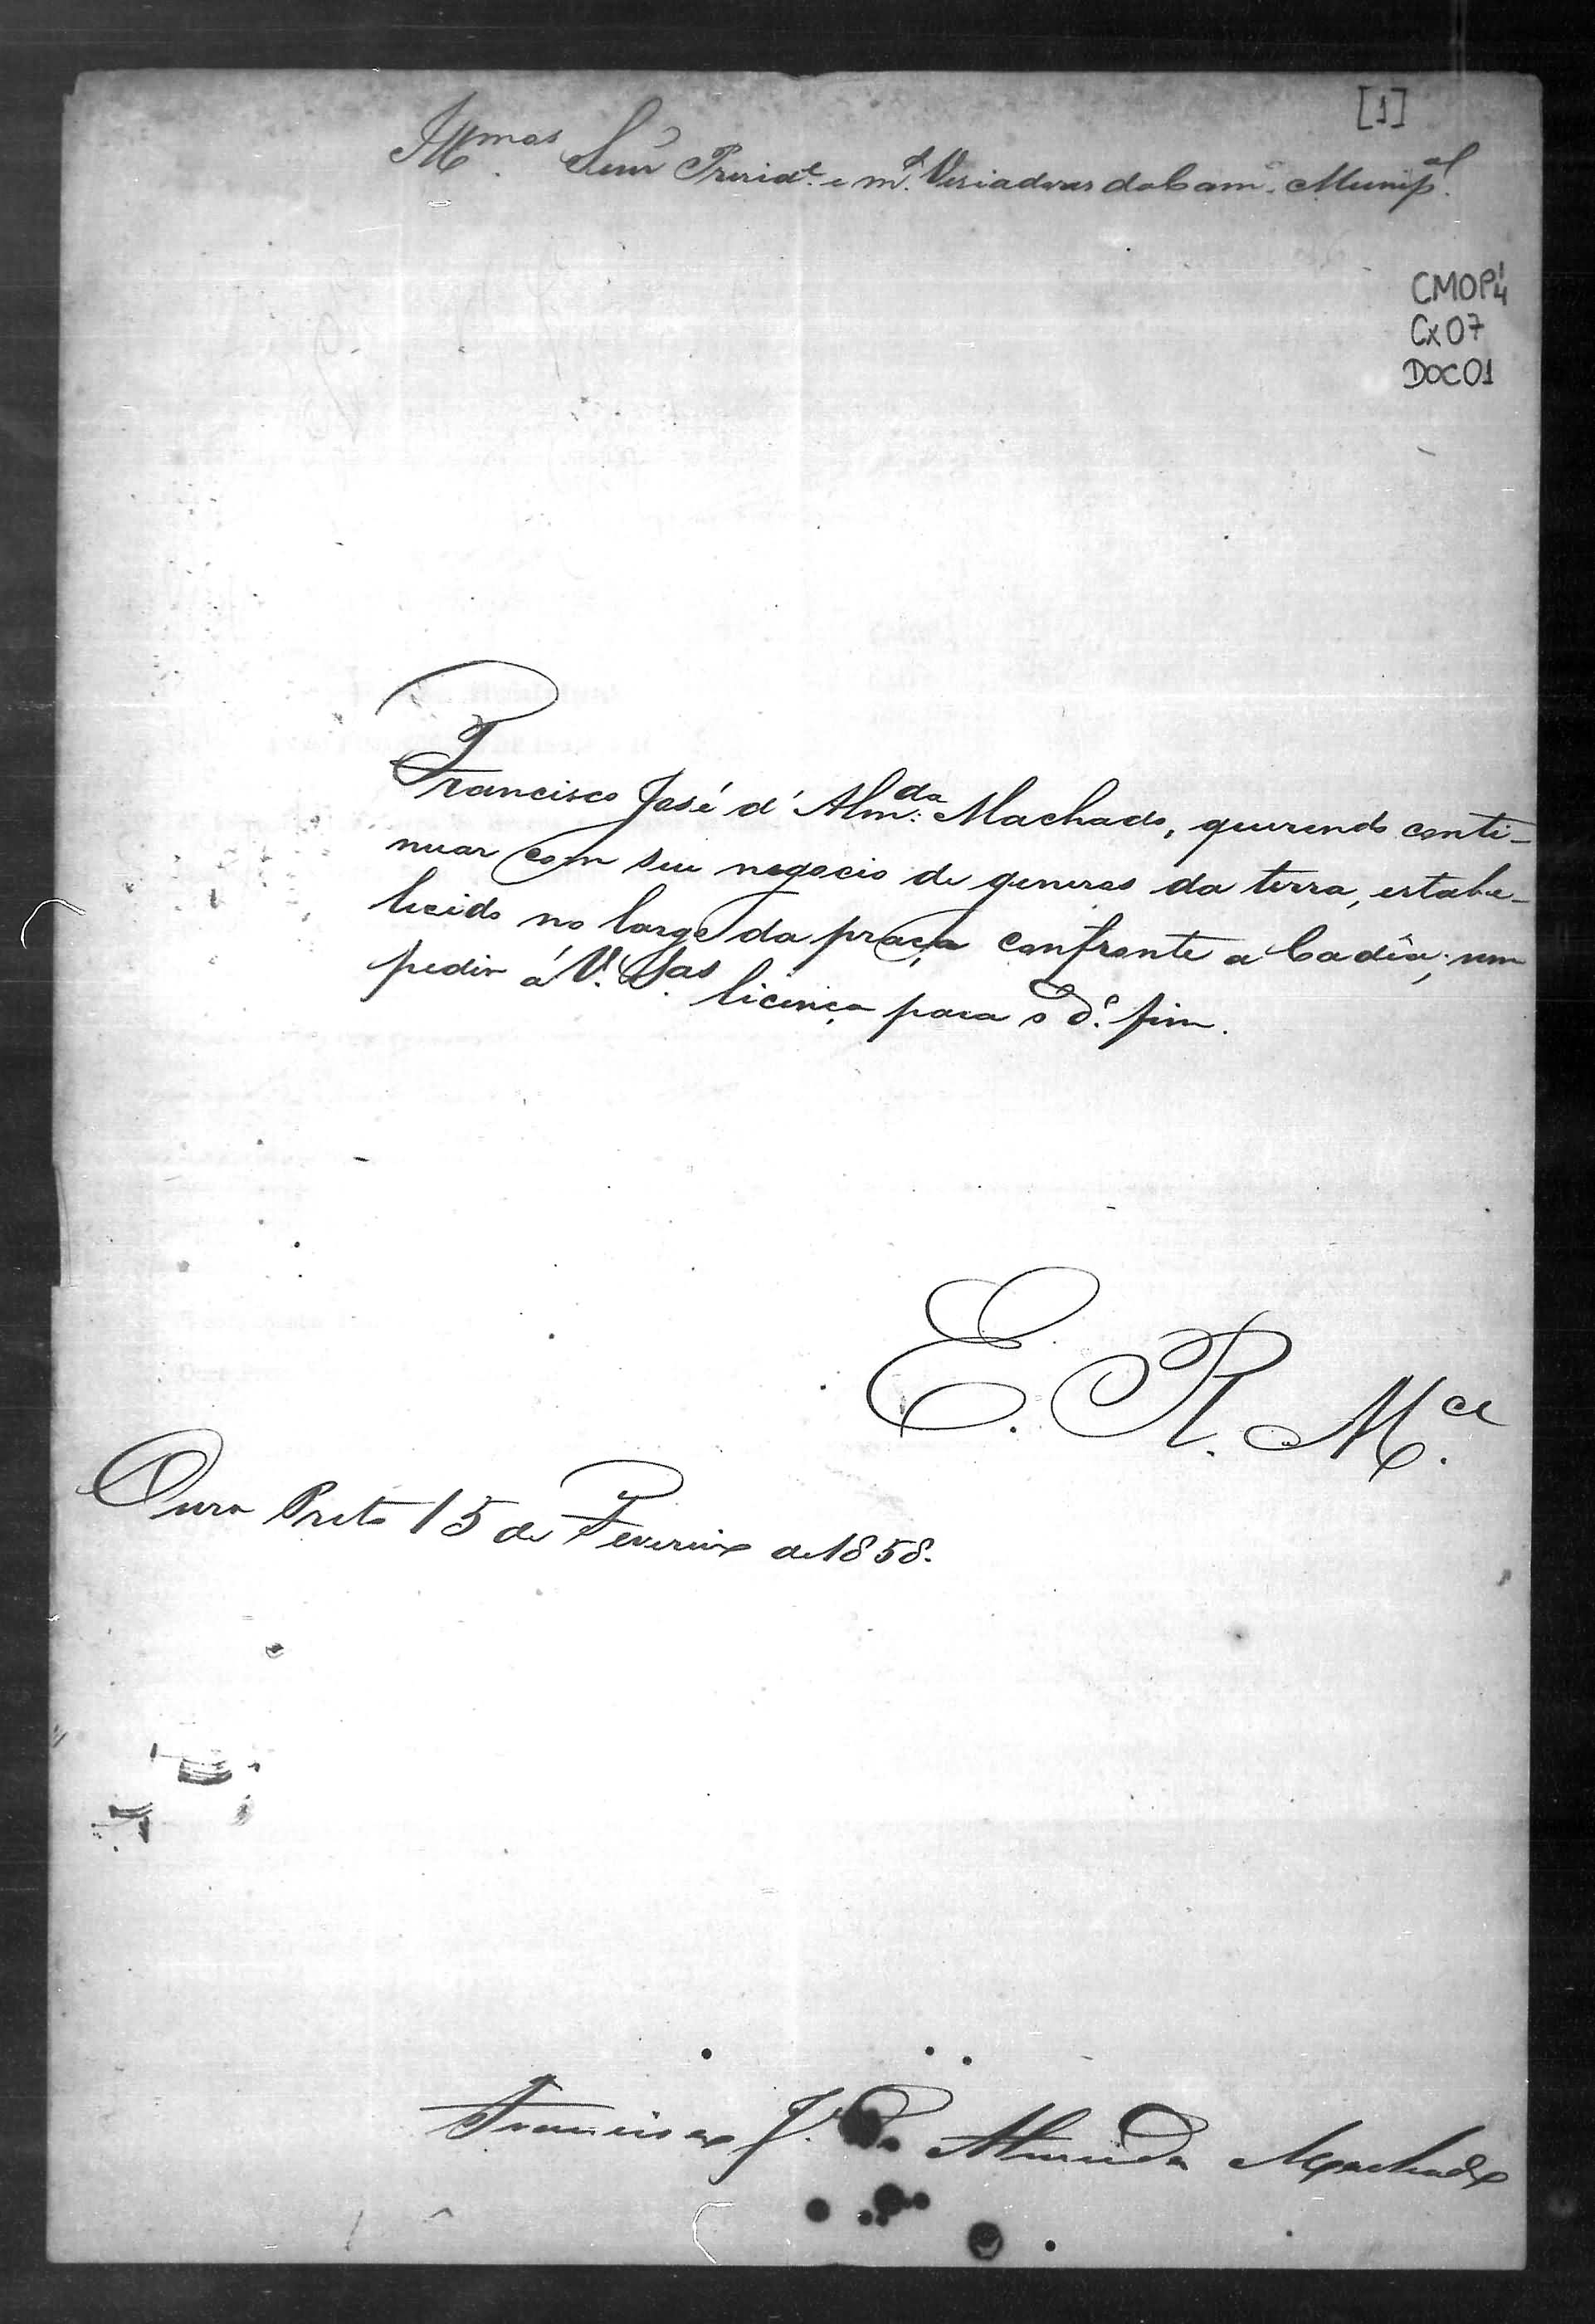 [1]
Illmos. Senr. Preside. e ms. Veriadores da Cam. Municpal.
CMOP 1/4
Cx 07
DOC 01
Francisco José d'Almda: Machado, querendo conti-
nuar com seu negocio de generos da terra, estabe-
lecido no largo da praça confronte a Cadêa; vem
pedir á V. Sas. licença para o do. fim.
E. R. Mce.
Ouro Preto 15 de Fevereiro de 1858.
Francisco J. de Almeida Machado